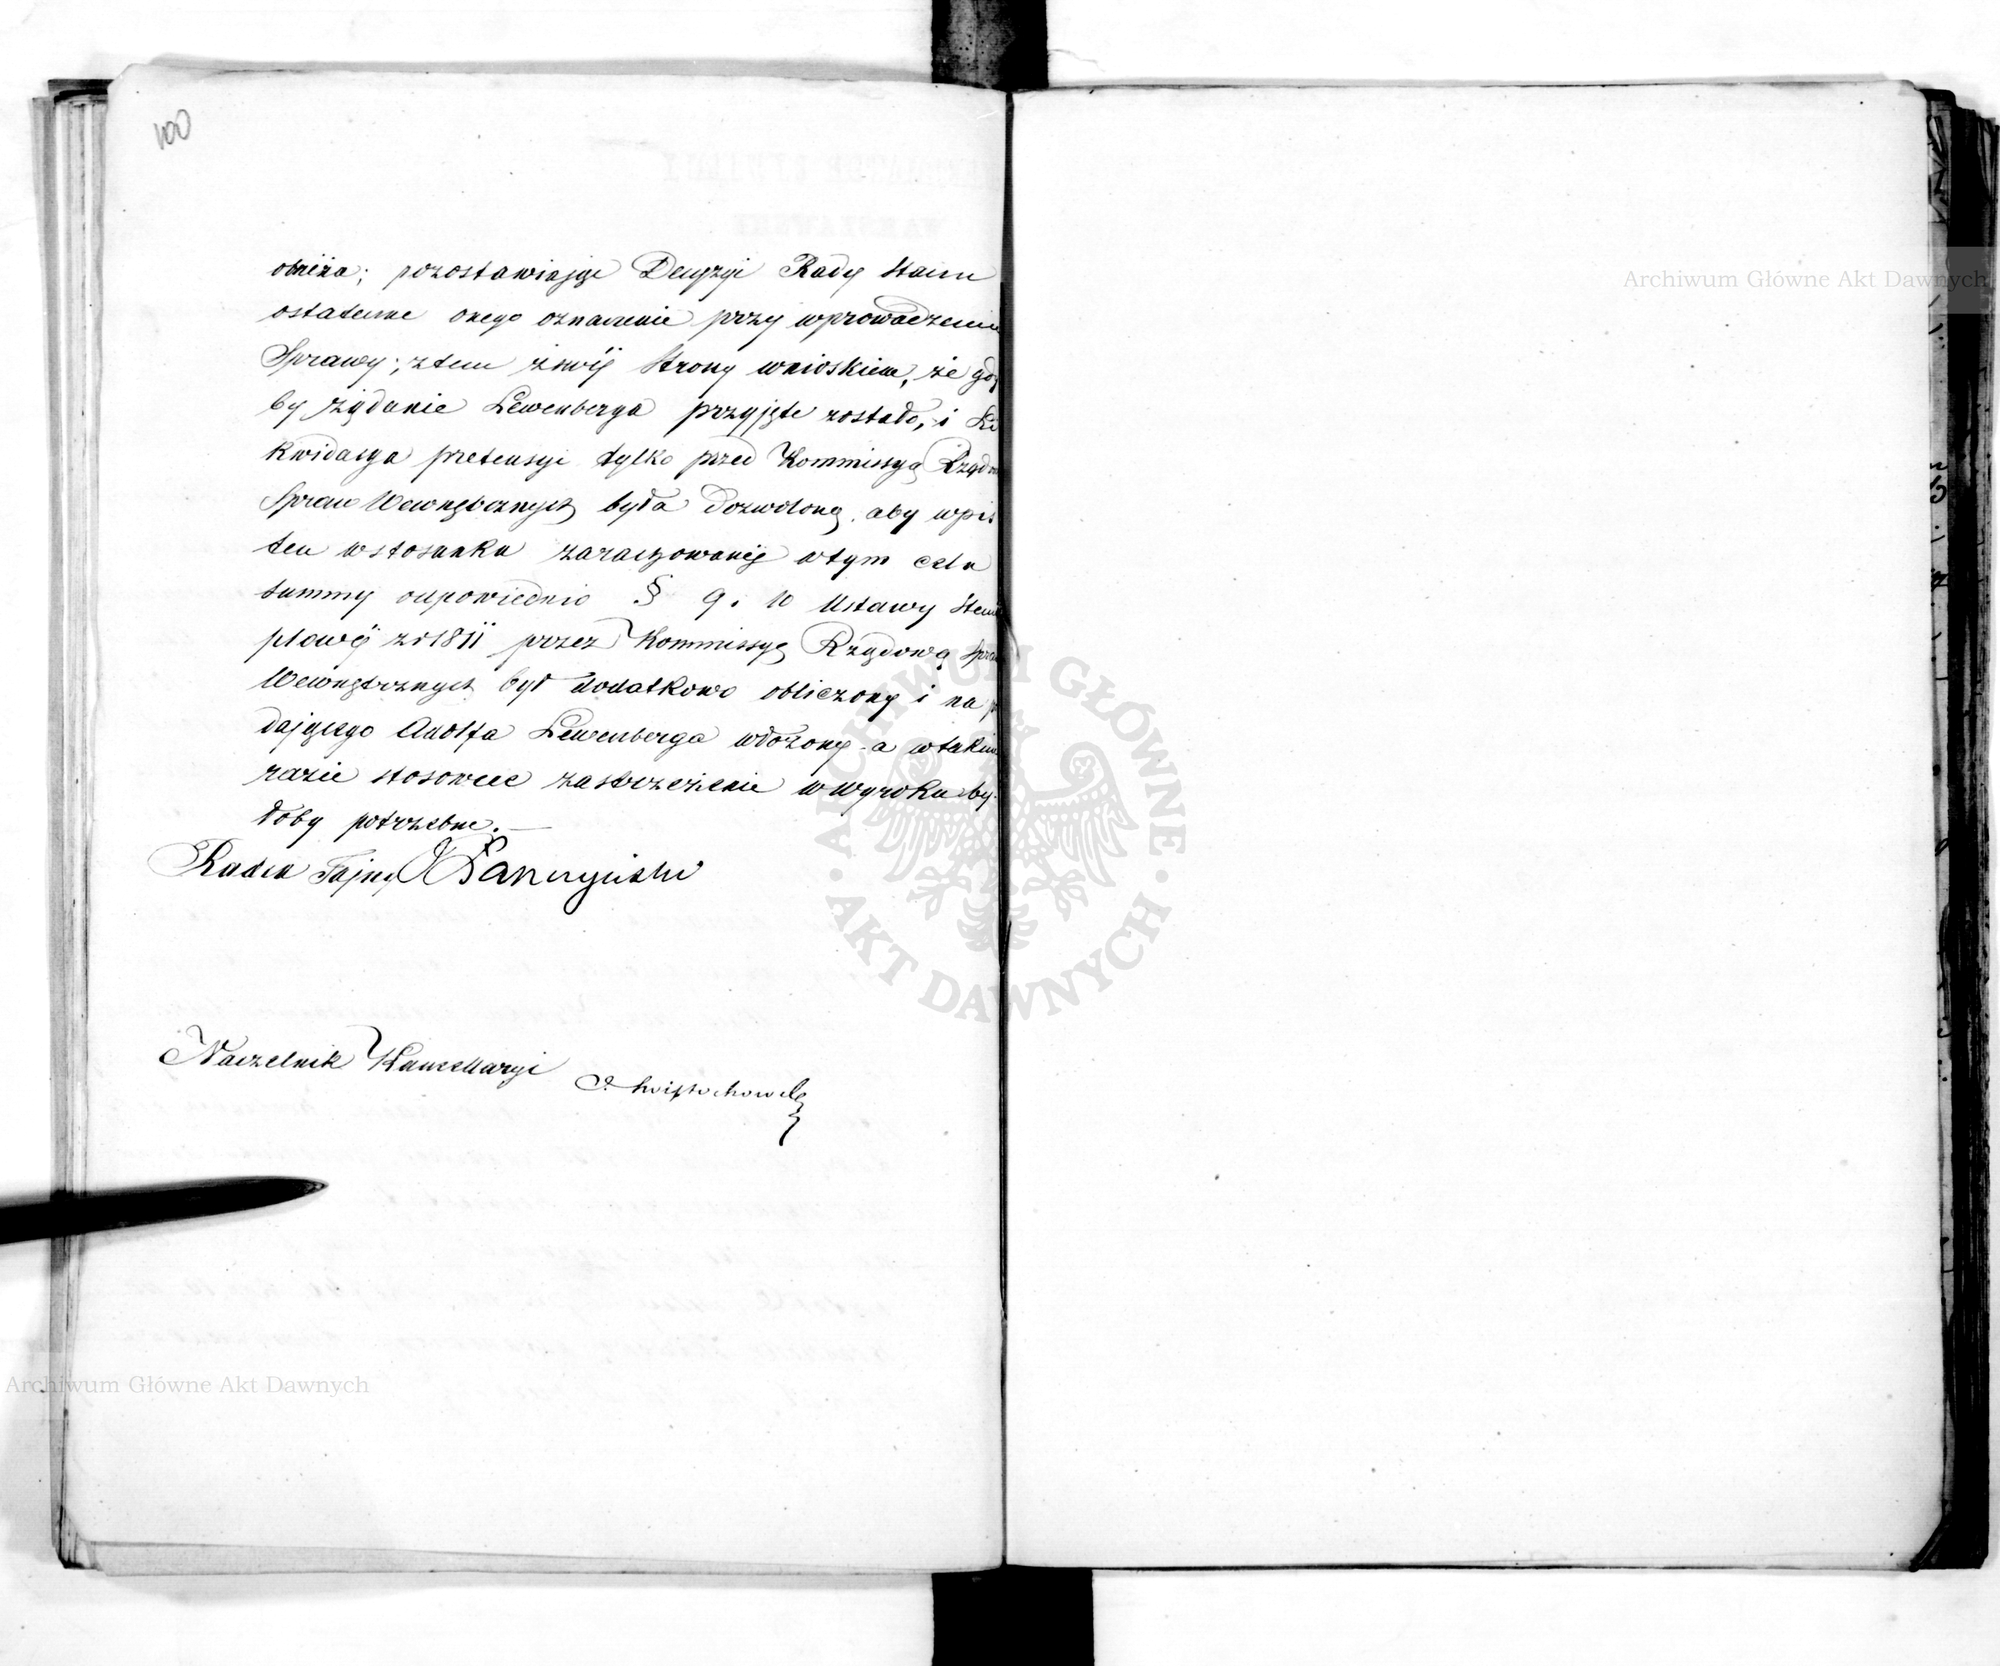 100
obniża; pozostawiając Decyzyi Rady Stanu
ostateczne onego oznaczenie przy wprowadzeniu
Sprawy; z tem z swéj Strony wnioskiem, że gdy
by żądanie Lewenberga przyjęte zostało, i Li
kwidacya pretensyi tylko przed Kommissyą Rządow
Spraw Wewnętrznych była dozwoloną, aby wpis
ten w stosunku zarachowanéj w tym celu
summy odpowiednio § 9. 10 Ustawy Stem
plowéj z r 1811 przez Kommissyą Rządową Spraw
Wewnętrznych był dodatkowo obliczony i na p
dającego Adolfa Lewenberga włożony a w takim
razie stosowne zastrzeżenie w wyroku by
łoby potrzebne.
Radca Tajny
Naczelnik Kancellaryi
Świętochowski
Archiwum Główne Akt Dawnych
Archiwum Główne Akt Dawnych
ARCHIWUM GŁÓWNE AKT DAWNYCH